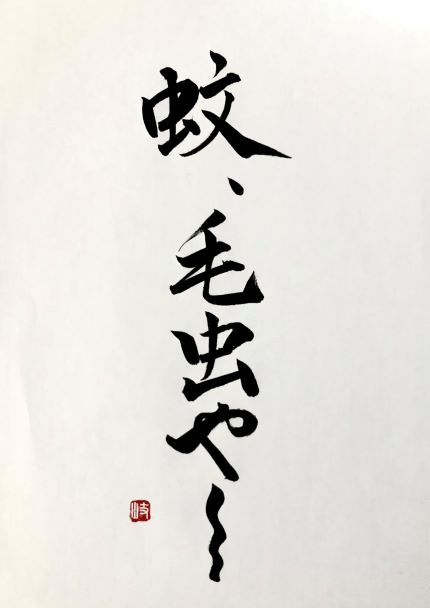 蚊、毛虫や〜
岐